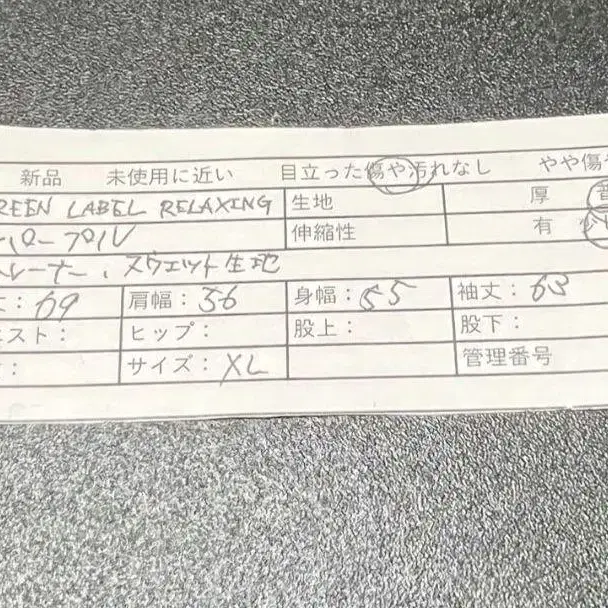 新品 未使用に近い 目立った傷や汚れなし やや傷や
REEN LABEL RELAXING 生地 厚 普
パープル 伸縮性 有 少
トレーナー、スウェット生地
丈:69 肩幅:56 身幅:55 袖丈:63
エスト: ヒップ: 股上: 股下:
: サイズ:XL 管理番号